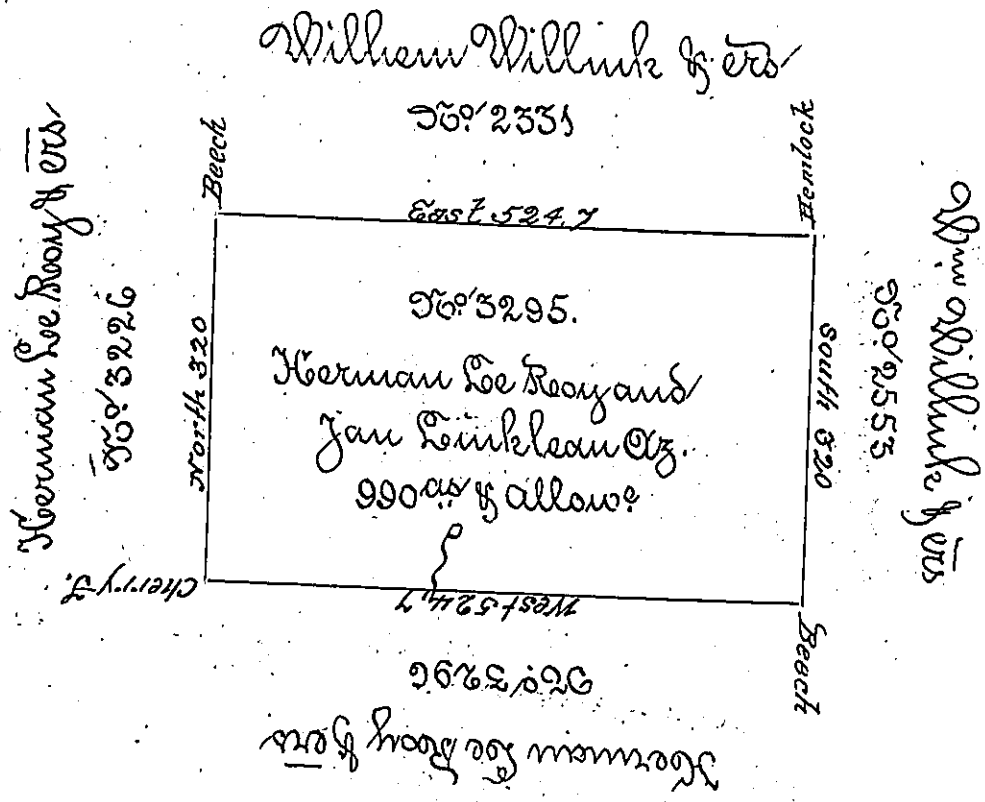 Wilhem Willink & ers
No. 2331
Beech
Hemlock
East 524.7
Herman Le Rooy & ers
No. 3226
North 320
No. 3295.
Herman Le Rooy and
Jan Linklean Az.
990 as & allowe
South 320
No. 2553
Wm Willink & ers
Cherry T.
West 524,7
Beech
No. 3296
Herman Le Rooy & ers